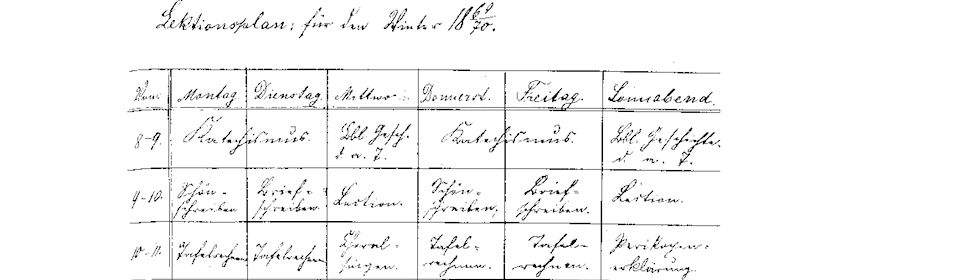 Lektionsplan: für den Winter 18 69/70.
Von: Montag. Dienstag Mittwo Donnerst. Freitag. Sonnabend.
8-9. Katechismus. Bbl Gesch. Katechismus. Bbl. Geschichte.
d. a. T. d. a. T.
9-10. Schön- Brief- Lection. Schön- Brief- Lection.
schreiben schreiben. schreiben. schreiben.
10-11. Tafelrechnen Tafelrechnen Choral- Tafel- Tafel- Perikopen-
singen. rechnen. rechnen. erklärung.